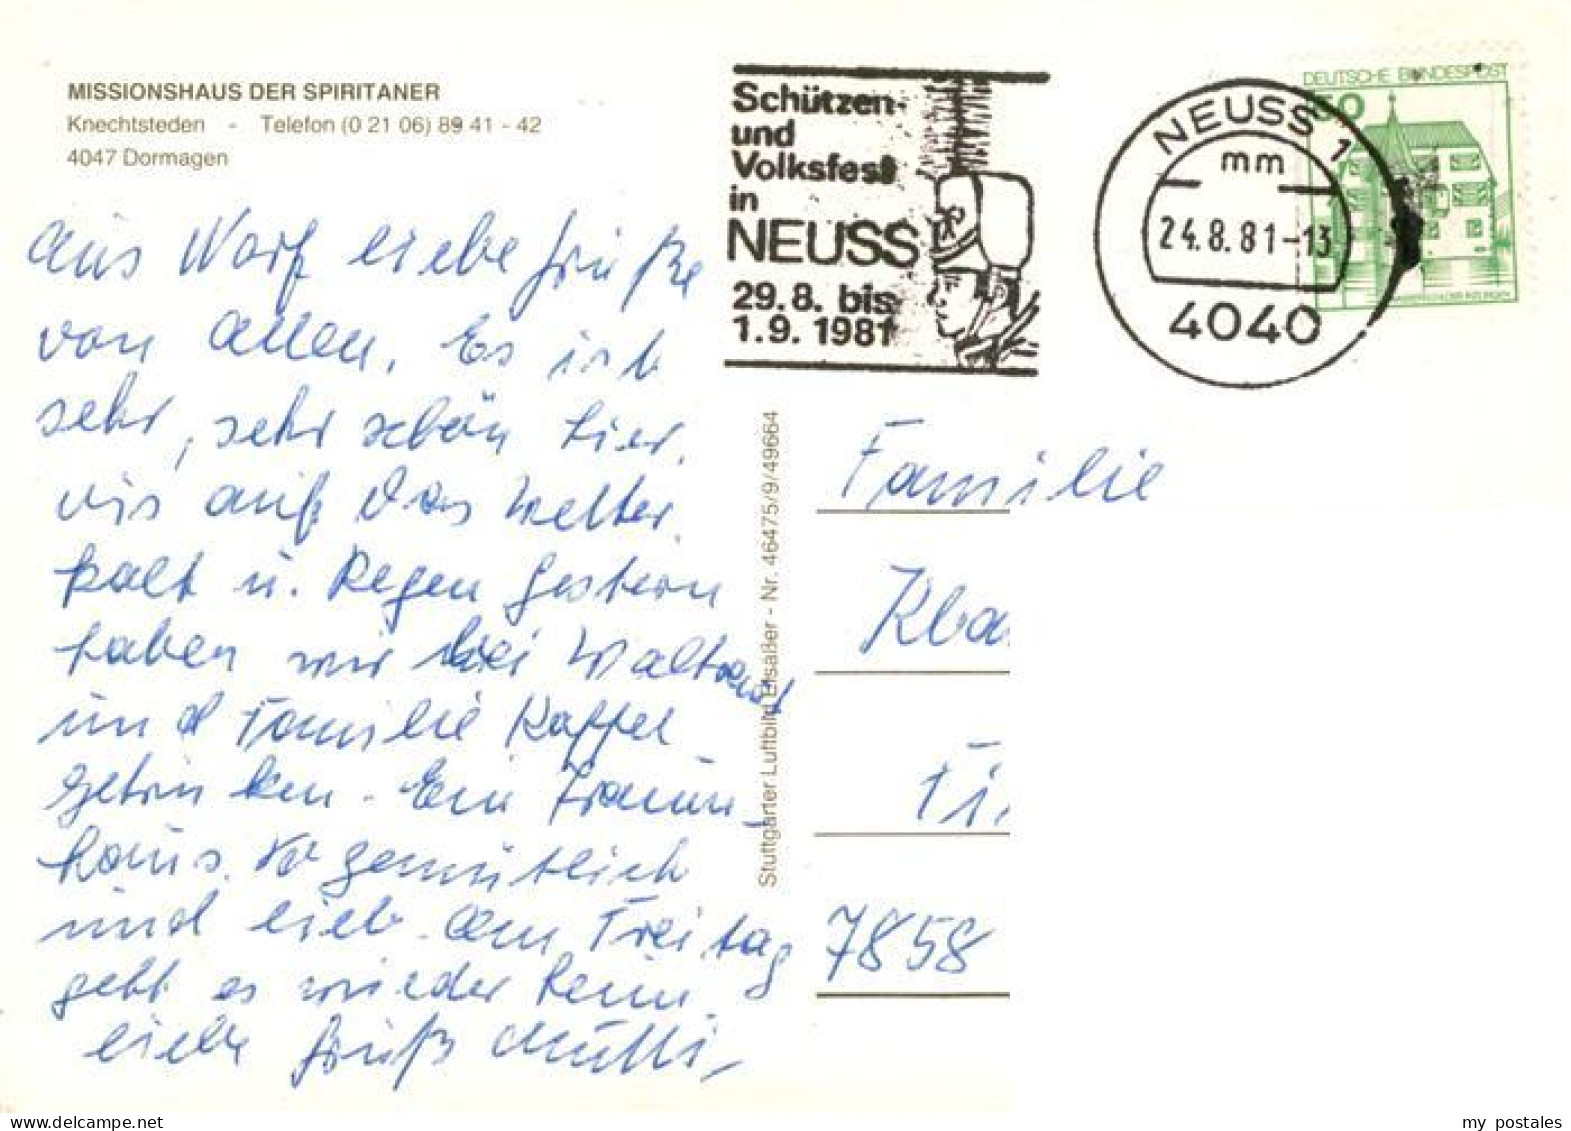 MISSIONSHAUS DER SPIRITANER
Knechtsteden - Telefon (0 21 06) 89 41 - 42
4047 Dormagen
Schützen-
und
Volksfest
in
NEUSS
29.8. bis
1.9. 1981
NEUSS 1
mm
24.8.81-13
4040
DEUTSCHE BUNDESPOST
50
aus liebe Grüße
von allen. Es ist
sehr, sehr schön hier,
bis auf das Wetter.
kalt u. Regen Gestern
haben wir bei Waltraud
und Familie Kaffee
getrunken. Ein Traum-
haus. So gemütlich
und lieb. Am Freitag
geht es wieder heim.
liebe Grüße Mutti
Stuttgarter Luftbild Elsäßer - Nr. 46475/9/49664
Familie
Kba
Fi
7858
my postales